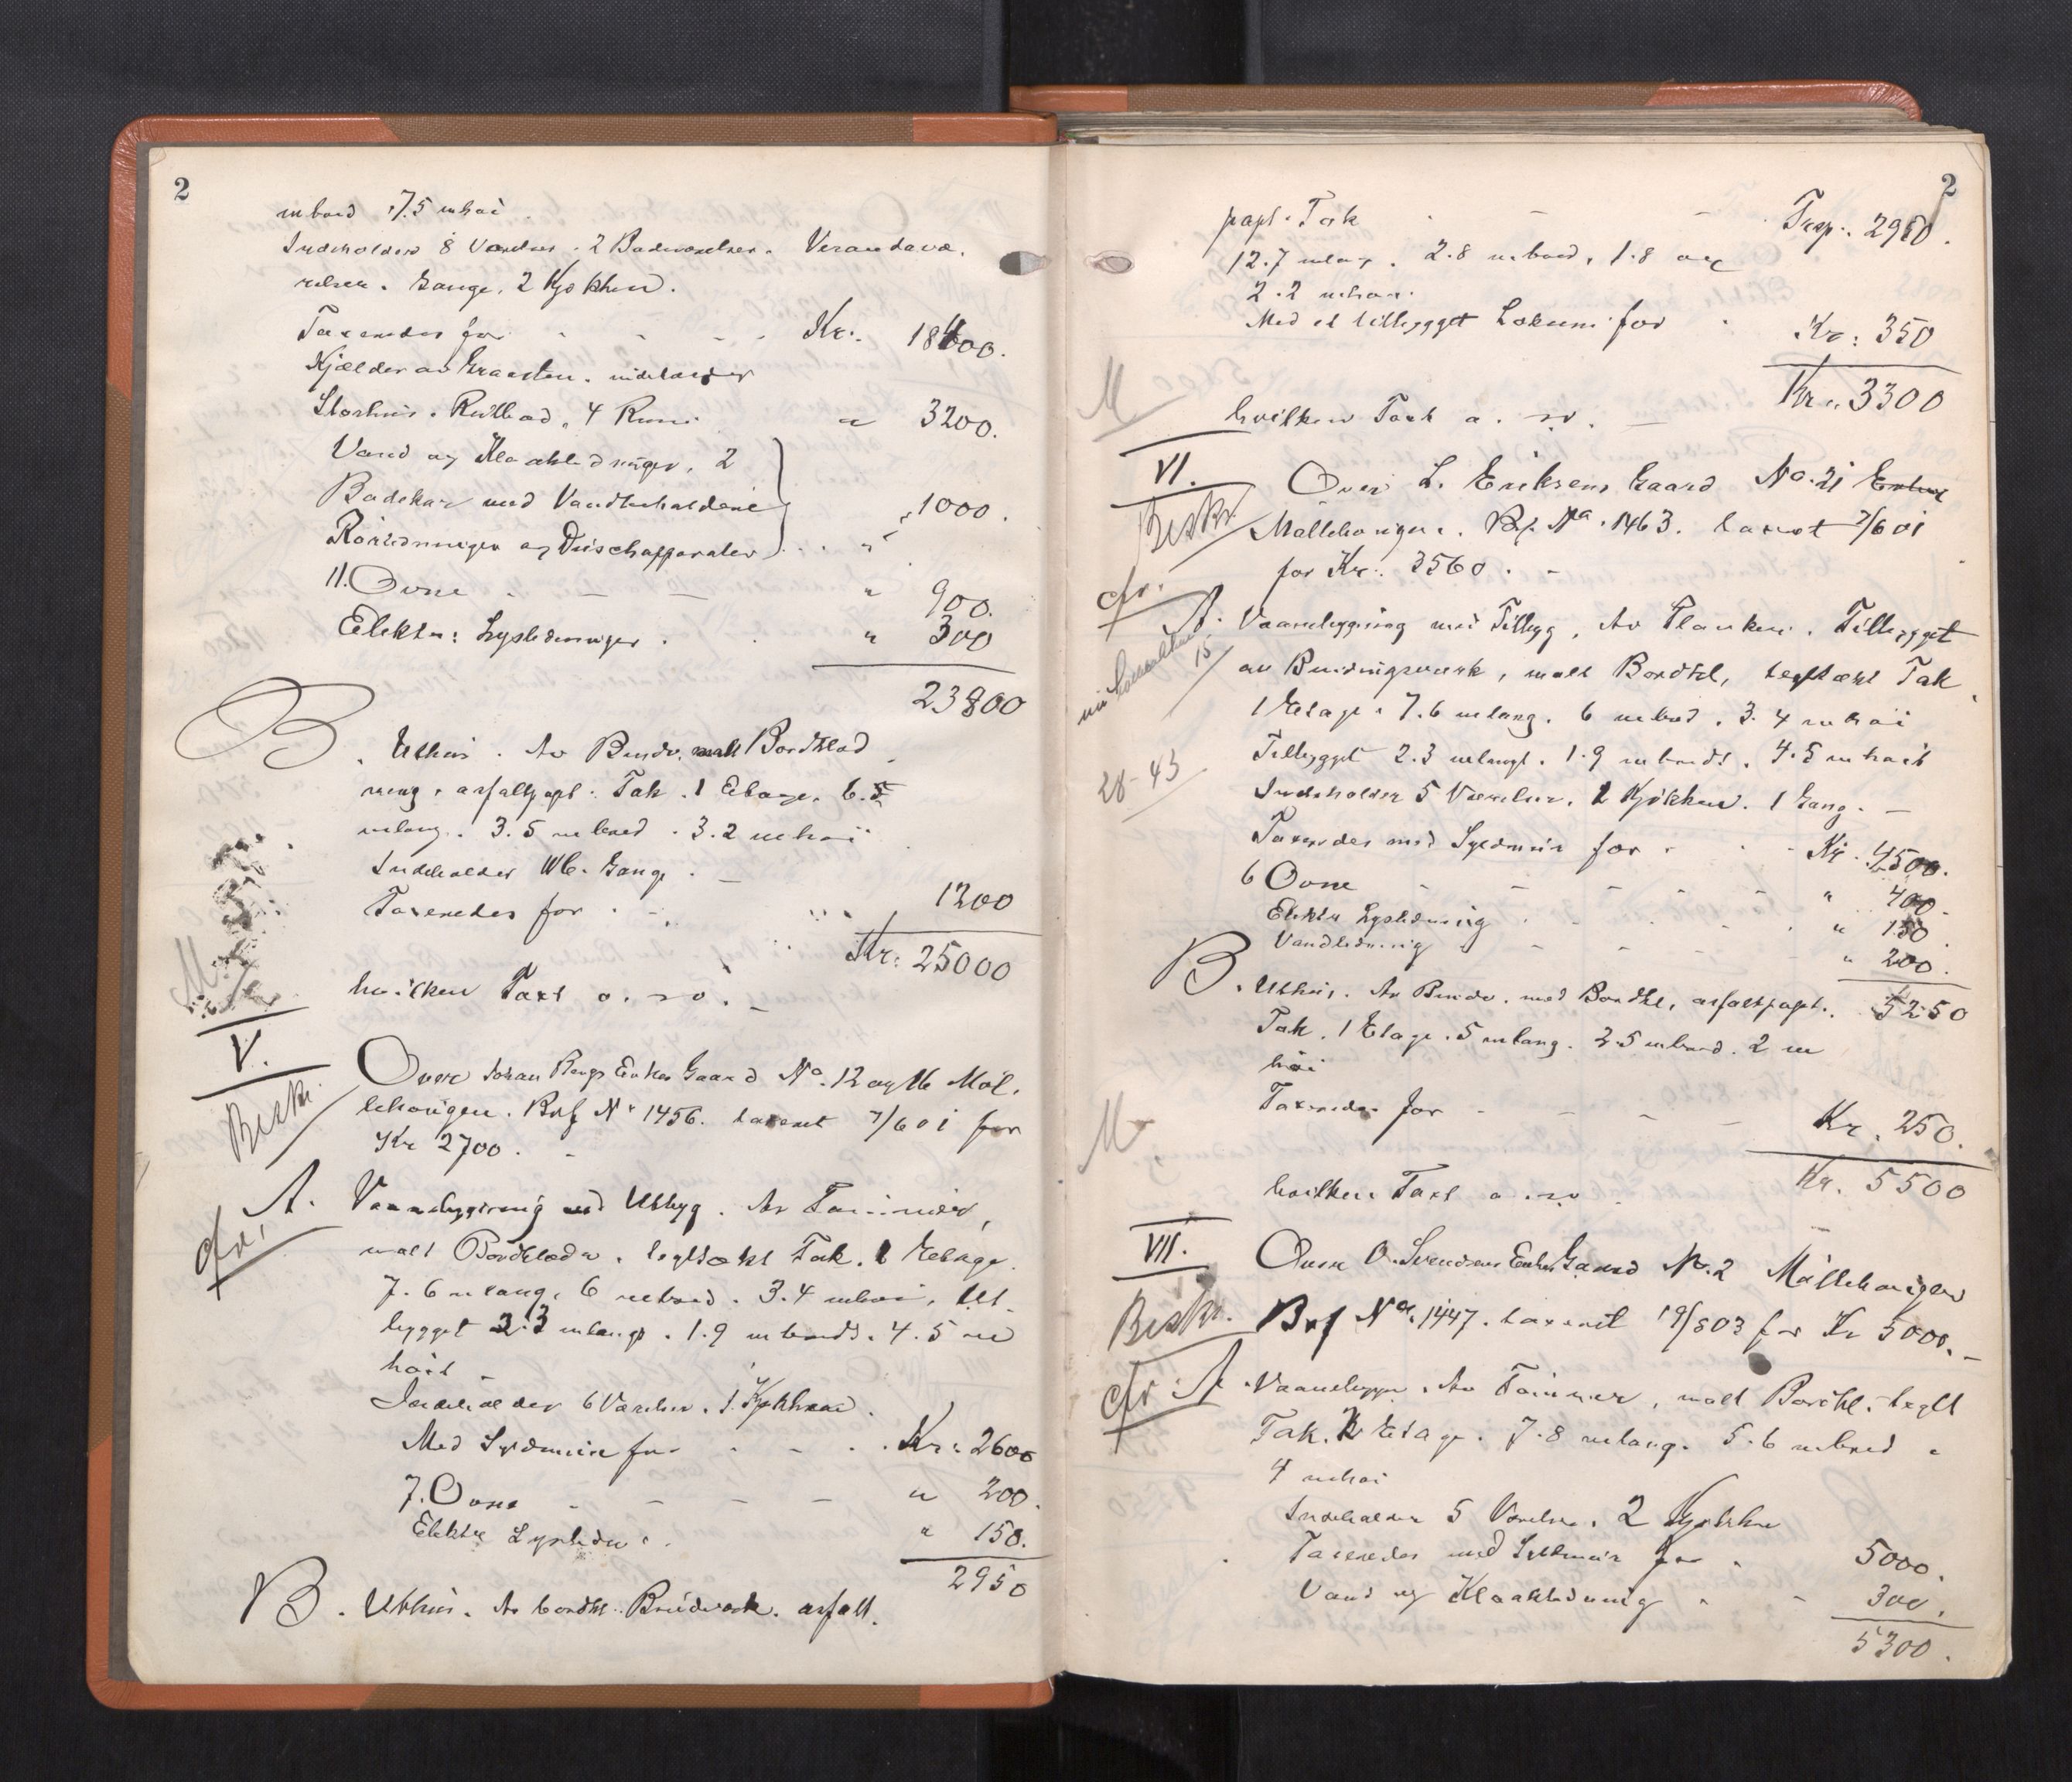 2
m bred 7.5 m høi
Indeholder 8 Værelser . 2 Badeværelser . Verandavæ-
relser . Gange . 2 Kjøkken .
Taxeredes for - - - Kr. 18400.
Kjælder av Graasten . indeholder
Rulbod . 4 Rum " 3200.
Vand og Kloakledninger . 2
Badekar med Vandbeholdere
Rørledninger og Duschapparater . . . " 1000.
11. Ovne - - - " 900.
Elektr: Lysledninger . " 300
23800
B. Uthus . Av Bindv. malt Bordklæd
ning . asfaltpapt : Tak . 1 Etage . 6.5
m lang . 3.5 m bred . 3.2 m høi
Indeholder Wc . Gange . -
Taxeredes for . - 1200
Kr: 25000
hvilken Taxt o. s. v. -
M
V.
Beskr
Over Johan Bergs Enkes Gaard No. 12 og 16 Møl-
lehougen . Brf No 1456 . taxeret 7/6 01 for
Kr 2700 . -
cfr.
A. Vaanebygning med Utbyg . Av Tømmer,
malt Bordklædn . teglt<ækt Tak . 1 Etage .
7.6 m lang . 6 m bred . 3.4 m høi . Ut-
bygget 2.3 m langt . 1.9 m bredt . 4.5 m
høit
Indeholder 6 Værelser . 1 Kjøkken .
Med Syldmur for - - . Kr: 2600
7. Ovne - - - - " 200.
Elektr Lysledn : . " 150.
2950
B. Uthus . Av bordkl. Bindverk . asfalt.
2
papt. Tak - - - Trsp.: 2950.
12.7 m lang . 2.8 m bred , 1.8 og
2.2 m høi .
Med et tilbygget Lokum for Kr: 350
Kr.. 3300
M
hvilken Taxt o. s. v. -
VI.
Beskr
Over L. Eriksens Gaard No. 21
Møllehougen . Brf. No. 1463 . taxeret 7/6 01
for Kr: 3560 . -
cfr.
15
28-43
A. Vaanebygning med Tilbyg . Av Planker . Tilbygget
av Bindingsværk , malt Bordkl , teglt<ækt Tak
1 Etage . 7.6 m lang . 6 m bred . 3.4 m høi
Tilbygget 2.3 m langt . 1.9 m bredt . 4.5 m høit
Indeholder 5 Værelser . 2 Kjøkken . 1 Gang . -
Taxeredes med Syldmur for . - Kr . 4500.
6 Ovne - - - - " 400.
Elektr Lysledning " 150.
Vandledning - - - " 200.
5250
B. Uthus . Av Bindv . med Bordkl , asfaltpapt.
Tak . 1 Etage . 5 m lang . 2.5 m bred . 2 m
høi
Taxeredes for - - - Kr . 250.
Kr. 5500
M
hvilken Taxt o. s. v.
VII.
Beskr.
Over O. Svendsens Enkes Gaard No. 2 Møllehougen
Brf No. 1447 . taxeret 19/8 03 for Kr 5000. -
cfr
A. Vaanebygn . Av Tømmer , malt Bordkl . teglt
Tak . 2 Etage . 7.8 m lang . 5.6 m bred .
4 m høi
Indeholder 5 Værelser . 2 Kjøkken
Taxeredes med Syldmur for . 5000.
Vand og Kloakledning . - 300.
5300.